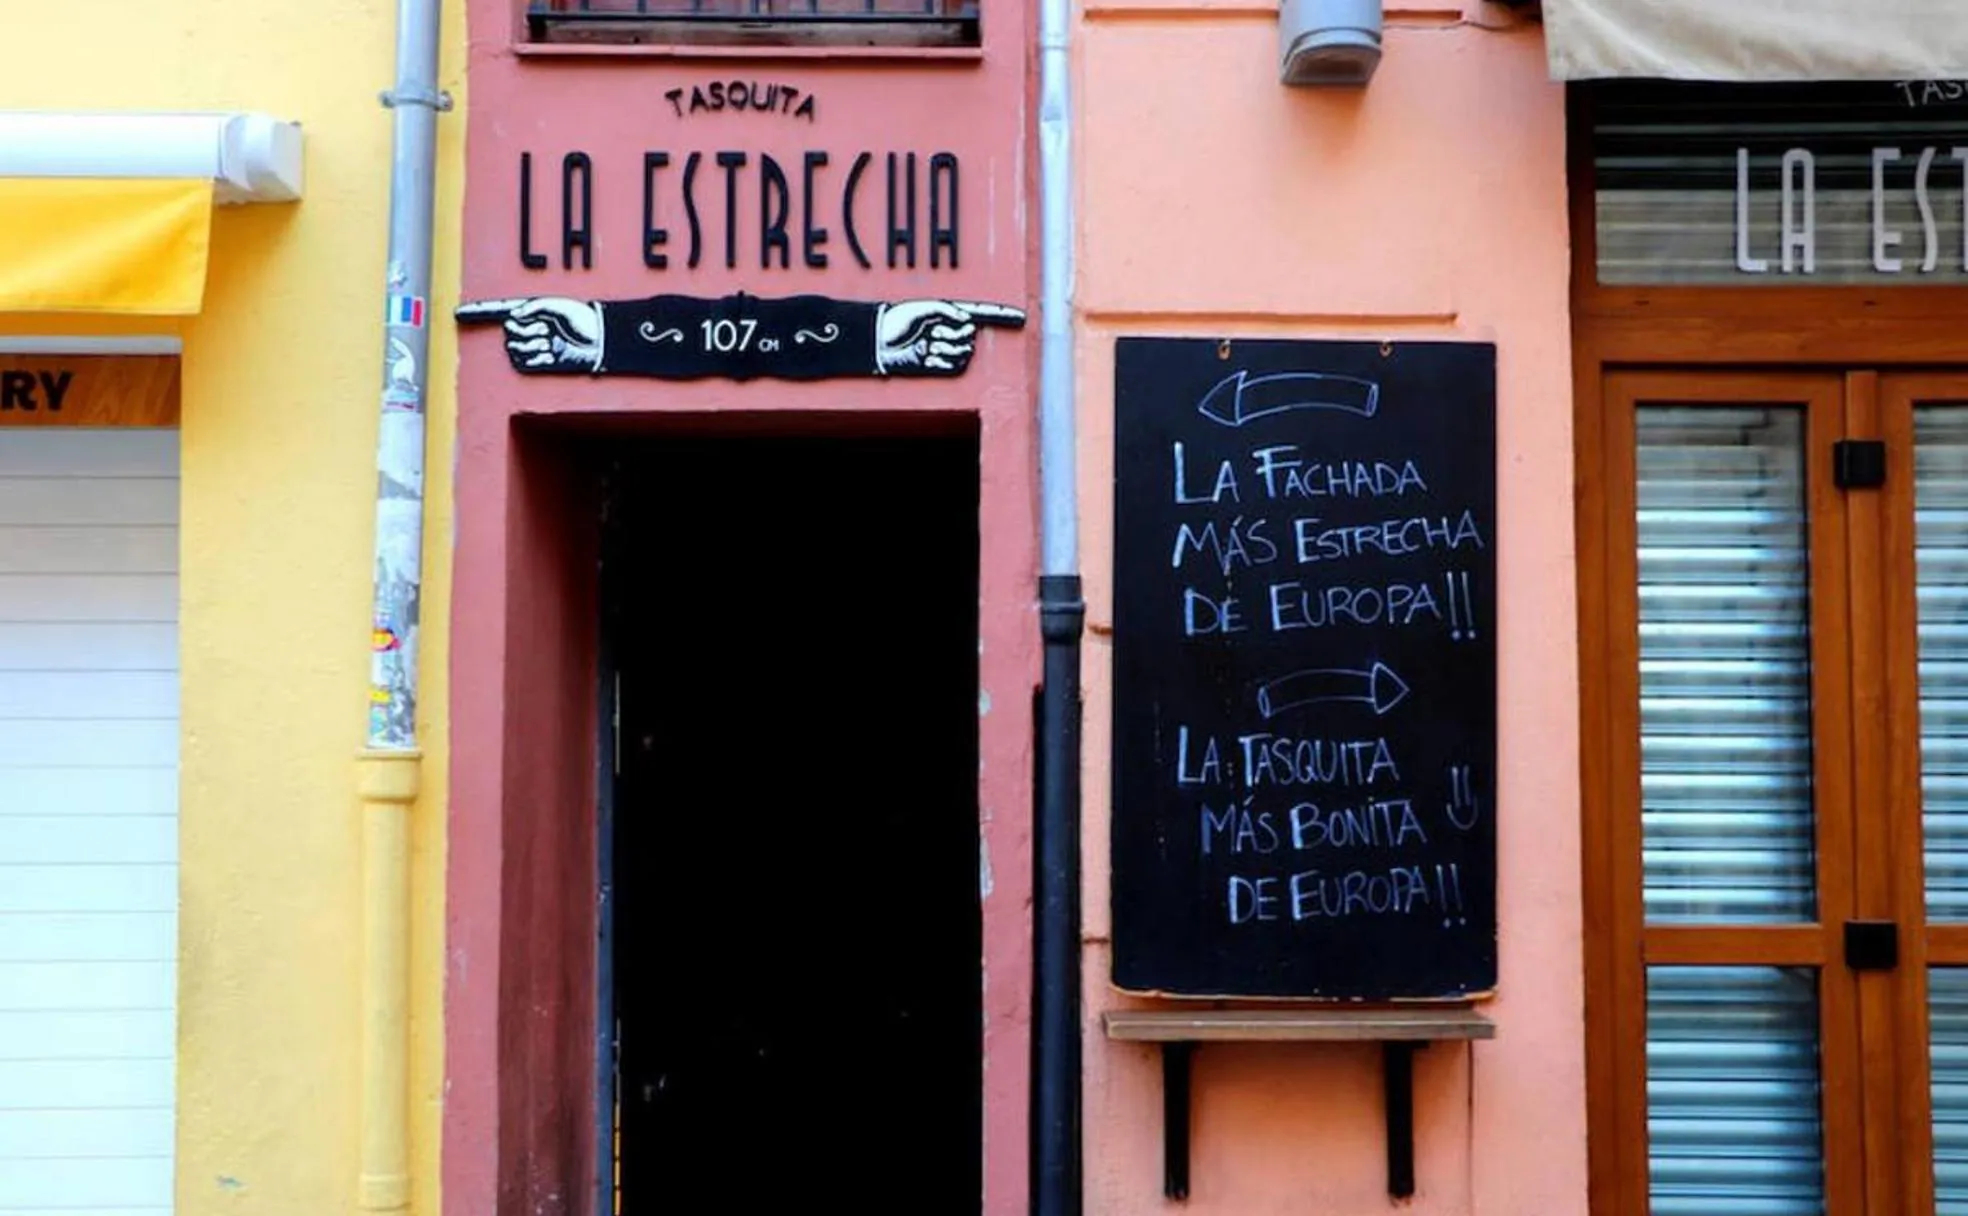 TASQUITA
LA ESTRECHA
107 CM
RY
LA FACHADA
MÁS ESTRECHA
DE EUROPA!!
LA TASQUITA
MÁS BONITA
DE EUROPA!!
TAS
LA EST